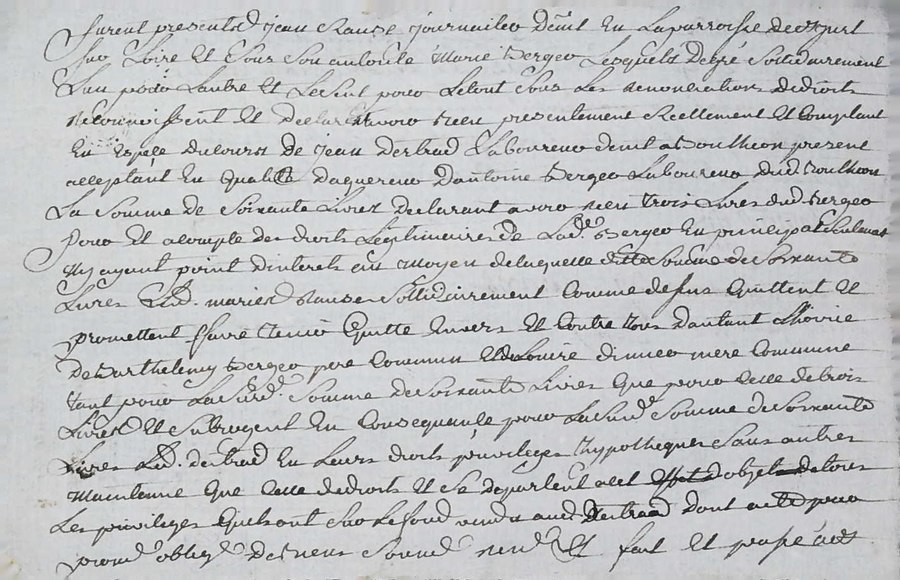 furent presents Jean Rause journailer dem.t en la parroisse de St Just
sur Loire et sous son autorité Marie Berger lesquels de gré solidairement
l'un pour l'autre et le seul pour le tout sous les renonciations de droits
reconnoissent et declarent avoir reçu presentement reellement et comptant
en espece du cours de Jean Dertrad laboureur dem.t a Bouthéon present
acceptant en qualité d'aquereur d'Antoine Berger laboureur dud. Bouthéon
la somme de soixante livres declarant avoir reçu trois livres dud. Berger
pour et a compte des droits legitimaires de lad.e Berger en principal seulement
n'y ayant point d'interets au moyen de laquelle ditte somme de soixante
livres lesd. mariés Rause solidairement comme dessus quittent et
promettent faire tenir quitte envers et contre tous d'autant l'hoirie
de Barthelemy Berger pere commun et de mere commune
tant pour la susd. somme de soixante livres que pour celle de trois
livres et subrogent en consequance pour la susd.e somme de soixante
livres led. Dertrad en leurs droits privileges hypotheques sans autres
maintenue que celle de droits et se departent a cet objet de tous
les privileges qu'ils ont sur le fond vendu aud. Dertrad dont acte pour
prom.e oblig.n de rien soum.n ren.n et fait et passé aud.